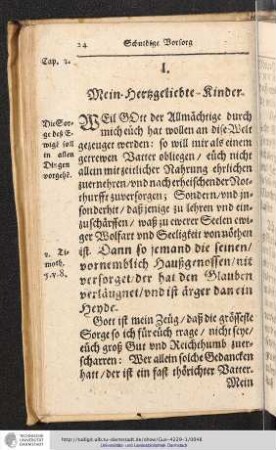 24
Schuldige Vorsorg
Cap. 2.
I.
Mein-Hertzgeliebte-Kinder.
WEil GOtt der Allmächtige durch
mich euch hat wollen an dise Welt
gezeuget werden: so will mir als einem
getrewen Vatter obliegen/ euch nicht
allein mit zeitlicher Nahrung ehrlichen
zuernehren/ und nach erheischender Not-
thurfft zuversorgen; Sondern/ und in-
sonderheit/ daßjenige zu lehren und ein-
zuschärffen/ waß zu ewerer Seelen ewi-
ger Wolfart und Seeligkeit von nöthen
ist. Dann so jemand die seinen/
vornemblich Haußgenossen/ nit
versorget/ der hat den Glauben
verläugnet/ und ist ärger dan ein
Heyde.
Gott ist mein Zeüg/ daß die grösseste
Sorge so ich für euch trage/ nicht seye/
euch groß Gut und Reichthumb zuer-
scharren: Wer allein solche Gedancken
hatt/ der ist ein fast thörichter Vatter.
Mein
Die Sor-
ge deß E-
wigē soll
in allen
Dingen
vorgehē.
1. Ti-
moth.
5. v. 8.
TECHNISCHE
UNIVERSITÄT
DARMSTADT